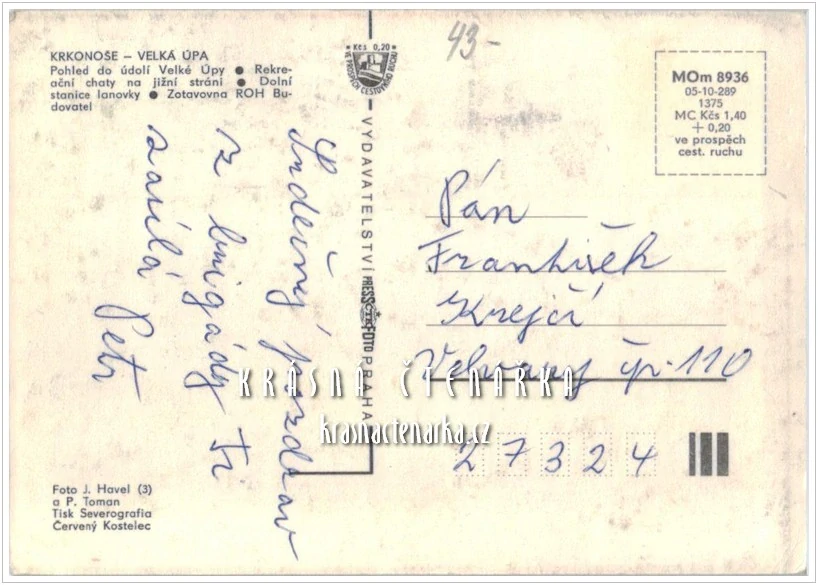 KRKONOŠE – VELKÁ ÚPA
Pohled do údolí Velké Úpy ● Rekre-
ační chaty na jižní stráni ● Dolní
stanice lanovky ● Zotavovna ROH Bu-
dovatel
43-
Kčs 0,20
VE PROSPĚCH CESTOVNÍHO RUCHU
MOm 8936
05-10-289
1375
MC Kčs 1,40
+ 0,20
ve prospěch
cest. ruchu
Srdečný pozdrav
z brigády Ti
zasílá Petr
VYDAVATELSTVÍ PRESSFOTO PRAHA
Pán
František
Krejčí
Velvary čp. 110
27324
KRÁSNÁ ČTENÁŘKA
krasnactenarka.cz
Foto J. Havel (3)
a P. Toman
Tisk Severografia
Červený Kostelec